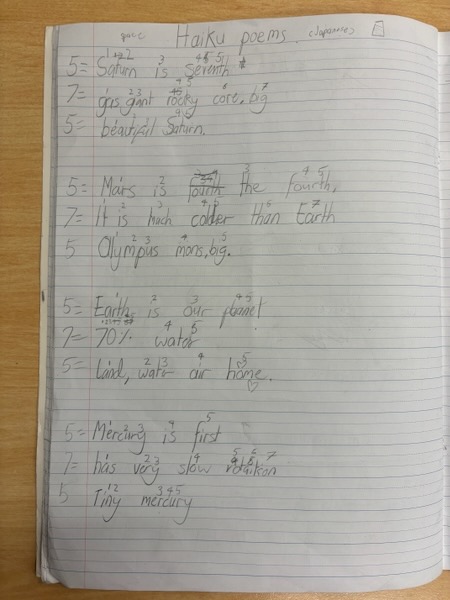 space Haiku poems. (Japanese)
5= Saturn is seventh
7= gas giant rocky core, big
5= beautiful Saturn.
5= Mars is fourth the fourth.
7= It is much colder than Earth
5 Olympus mons, big.
5= Earth is our planet
7= 70% water
5= land, water air home.
5= Mercury is first
7= has very slow
5 Tiny mercury